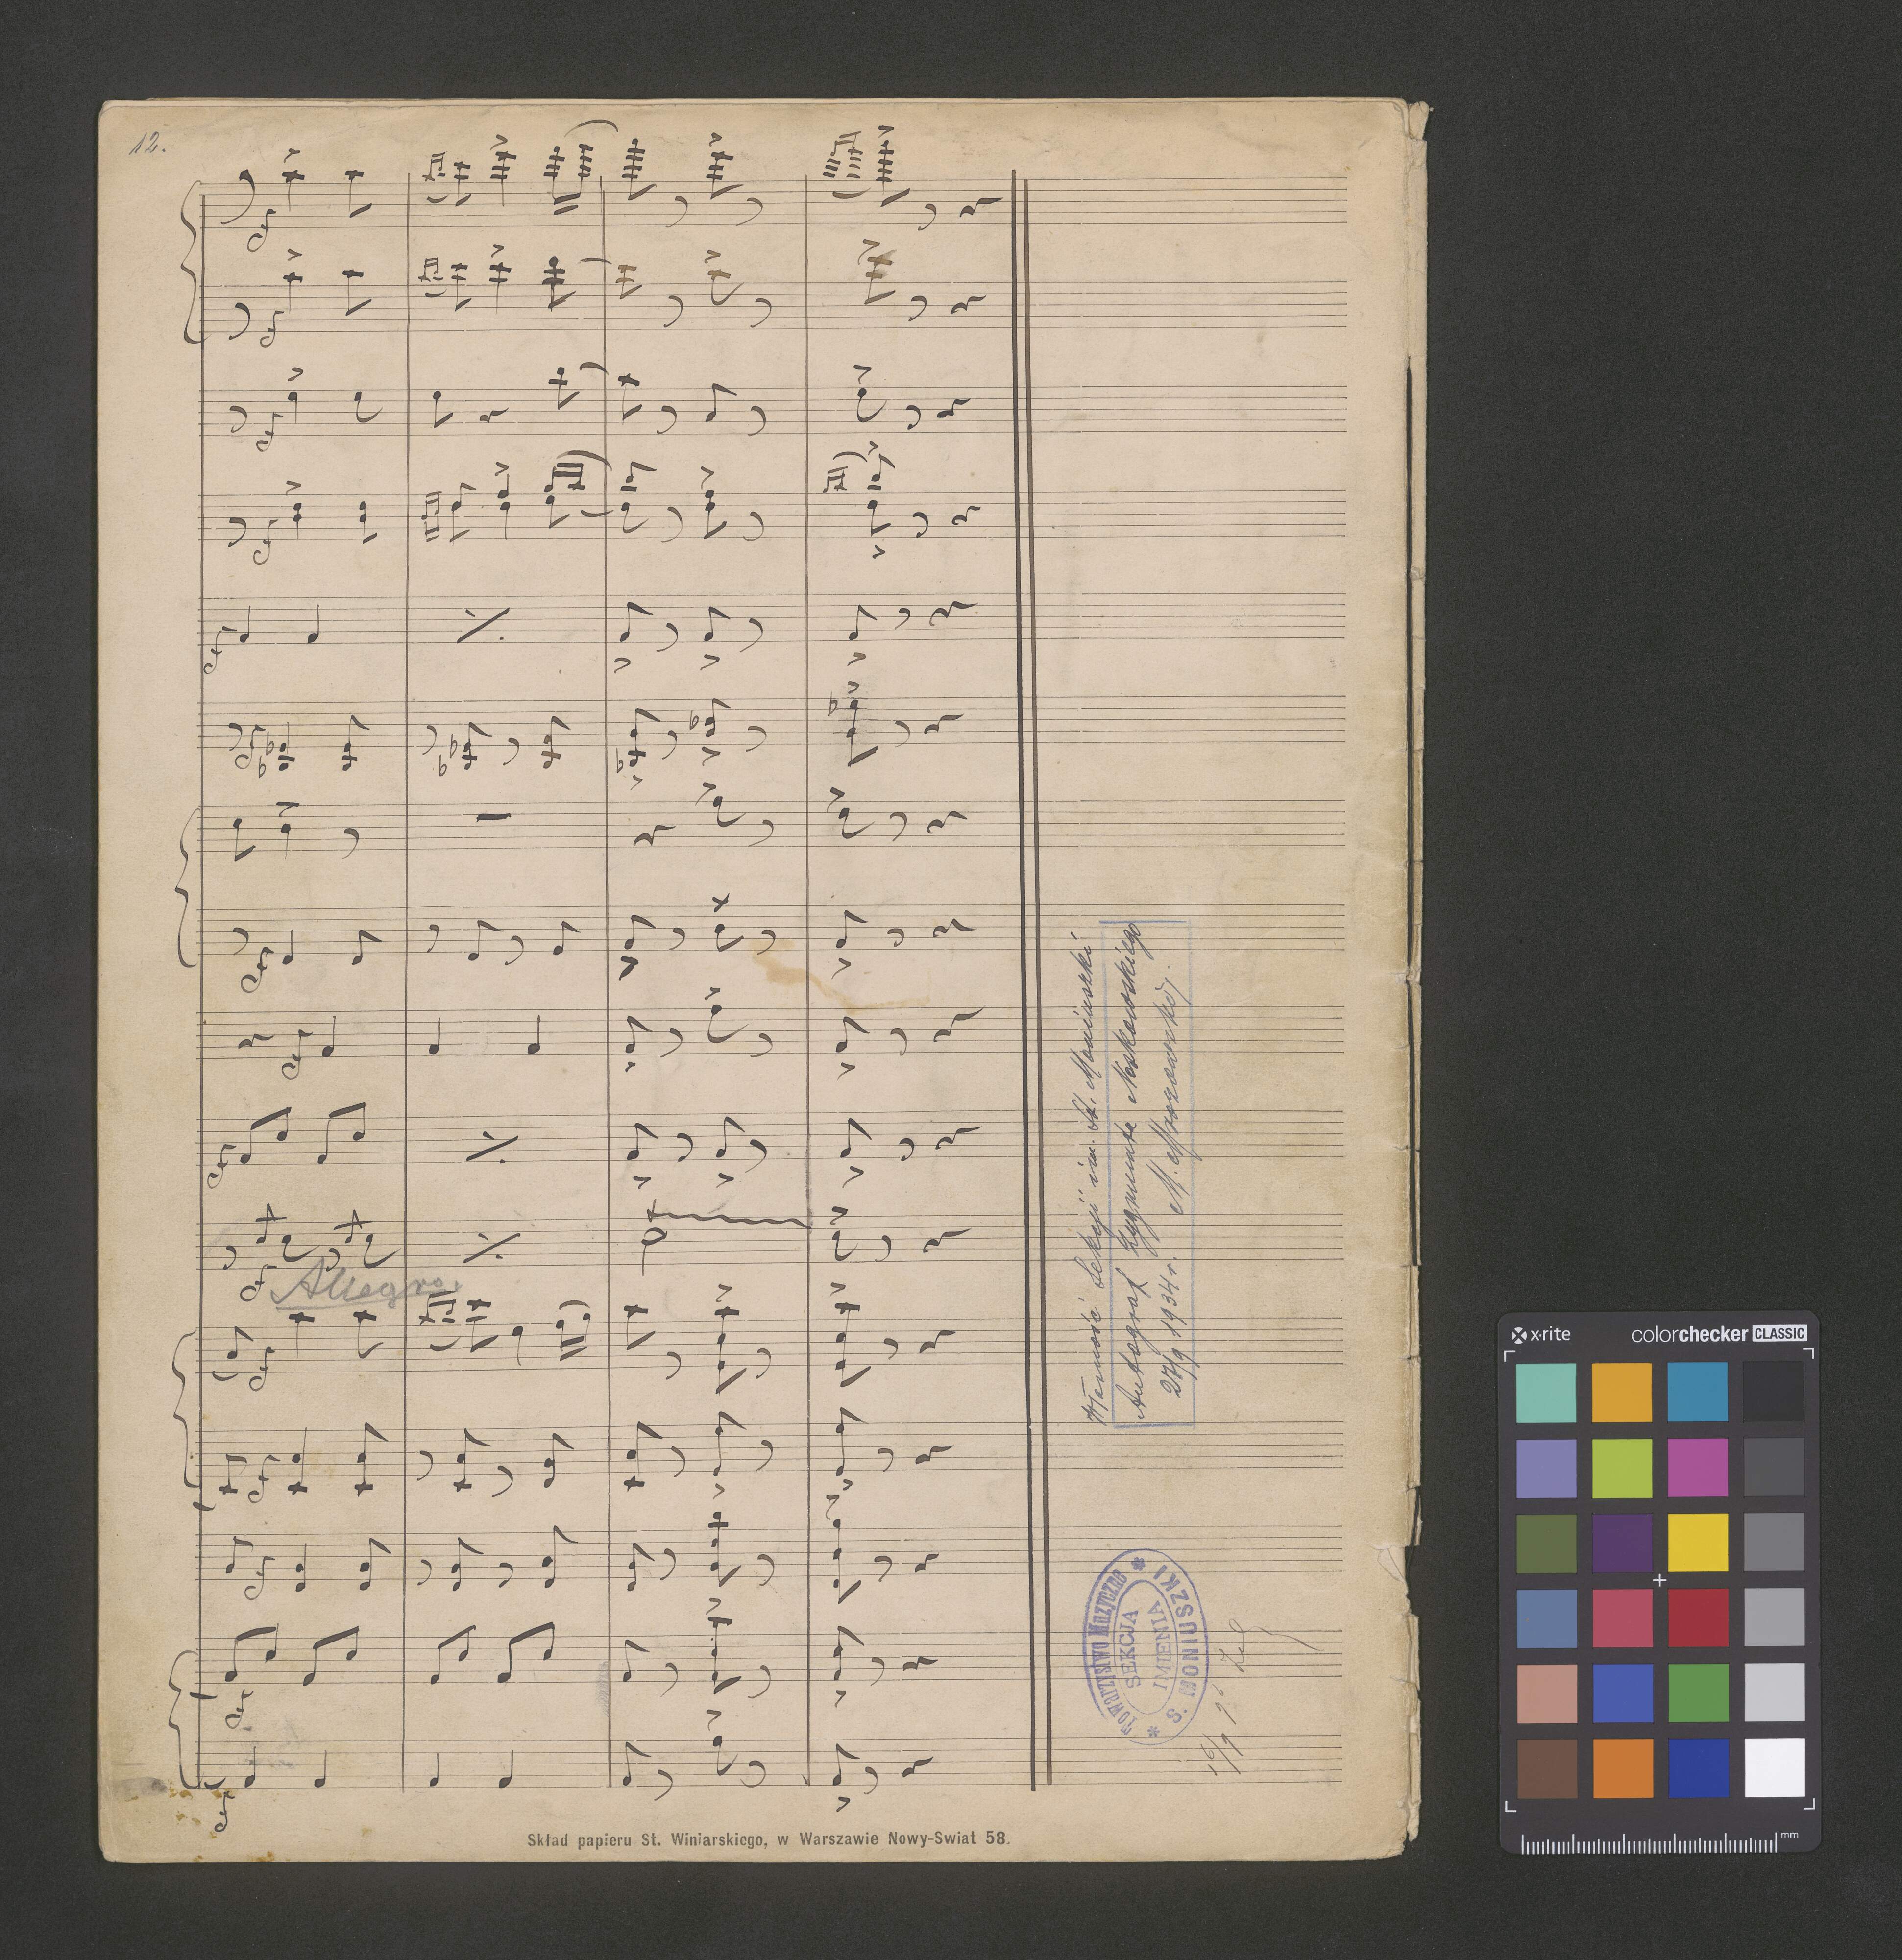 12.
Allegro
Własność Sekcji im. St. Moniuszki
Autograf Zygmunta Noskowskiego
27/9 1934 r.
TOWARZYSTWO MUZYCZNE
SEKCJA
IMIENIA
S. MONIUSZKI
Skład papieru St. Winiarskiego, w Warszawie Nowy-Swiat 58.
x·rite colorchecker CLASSIC
mm